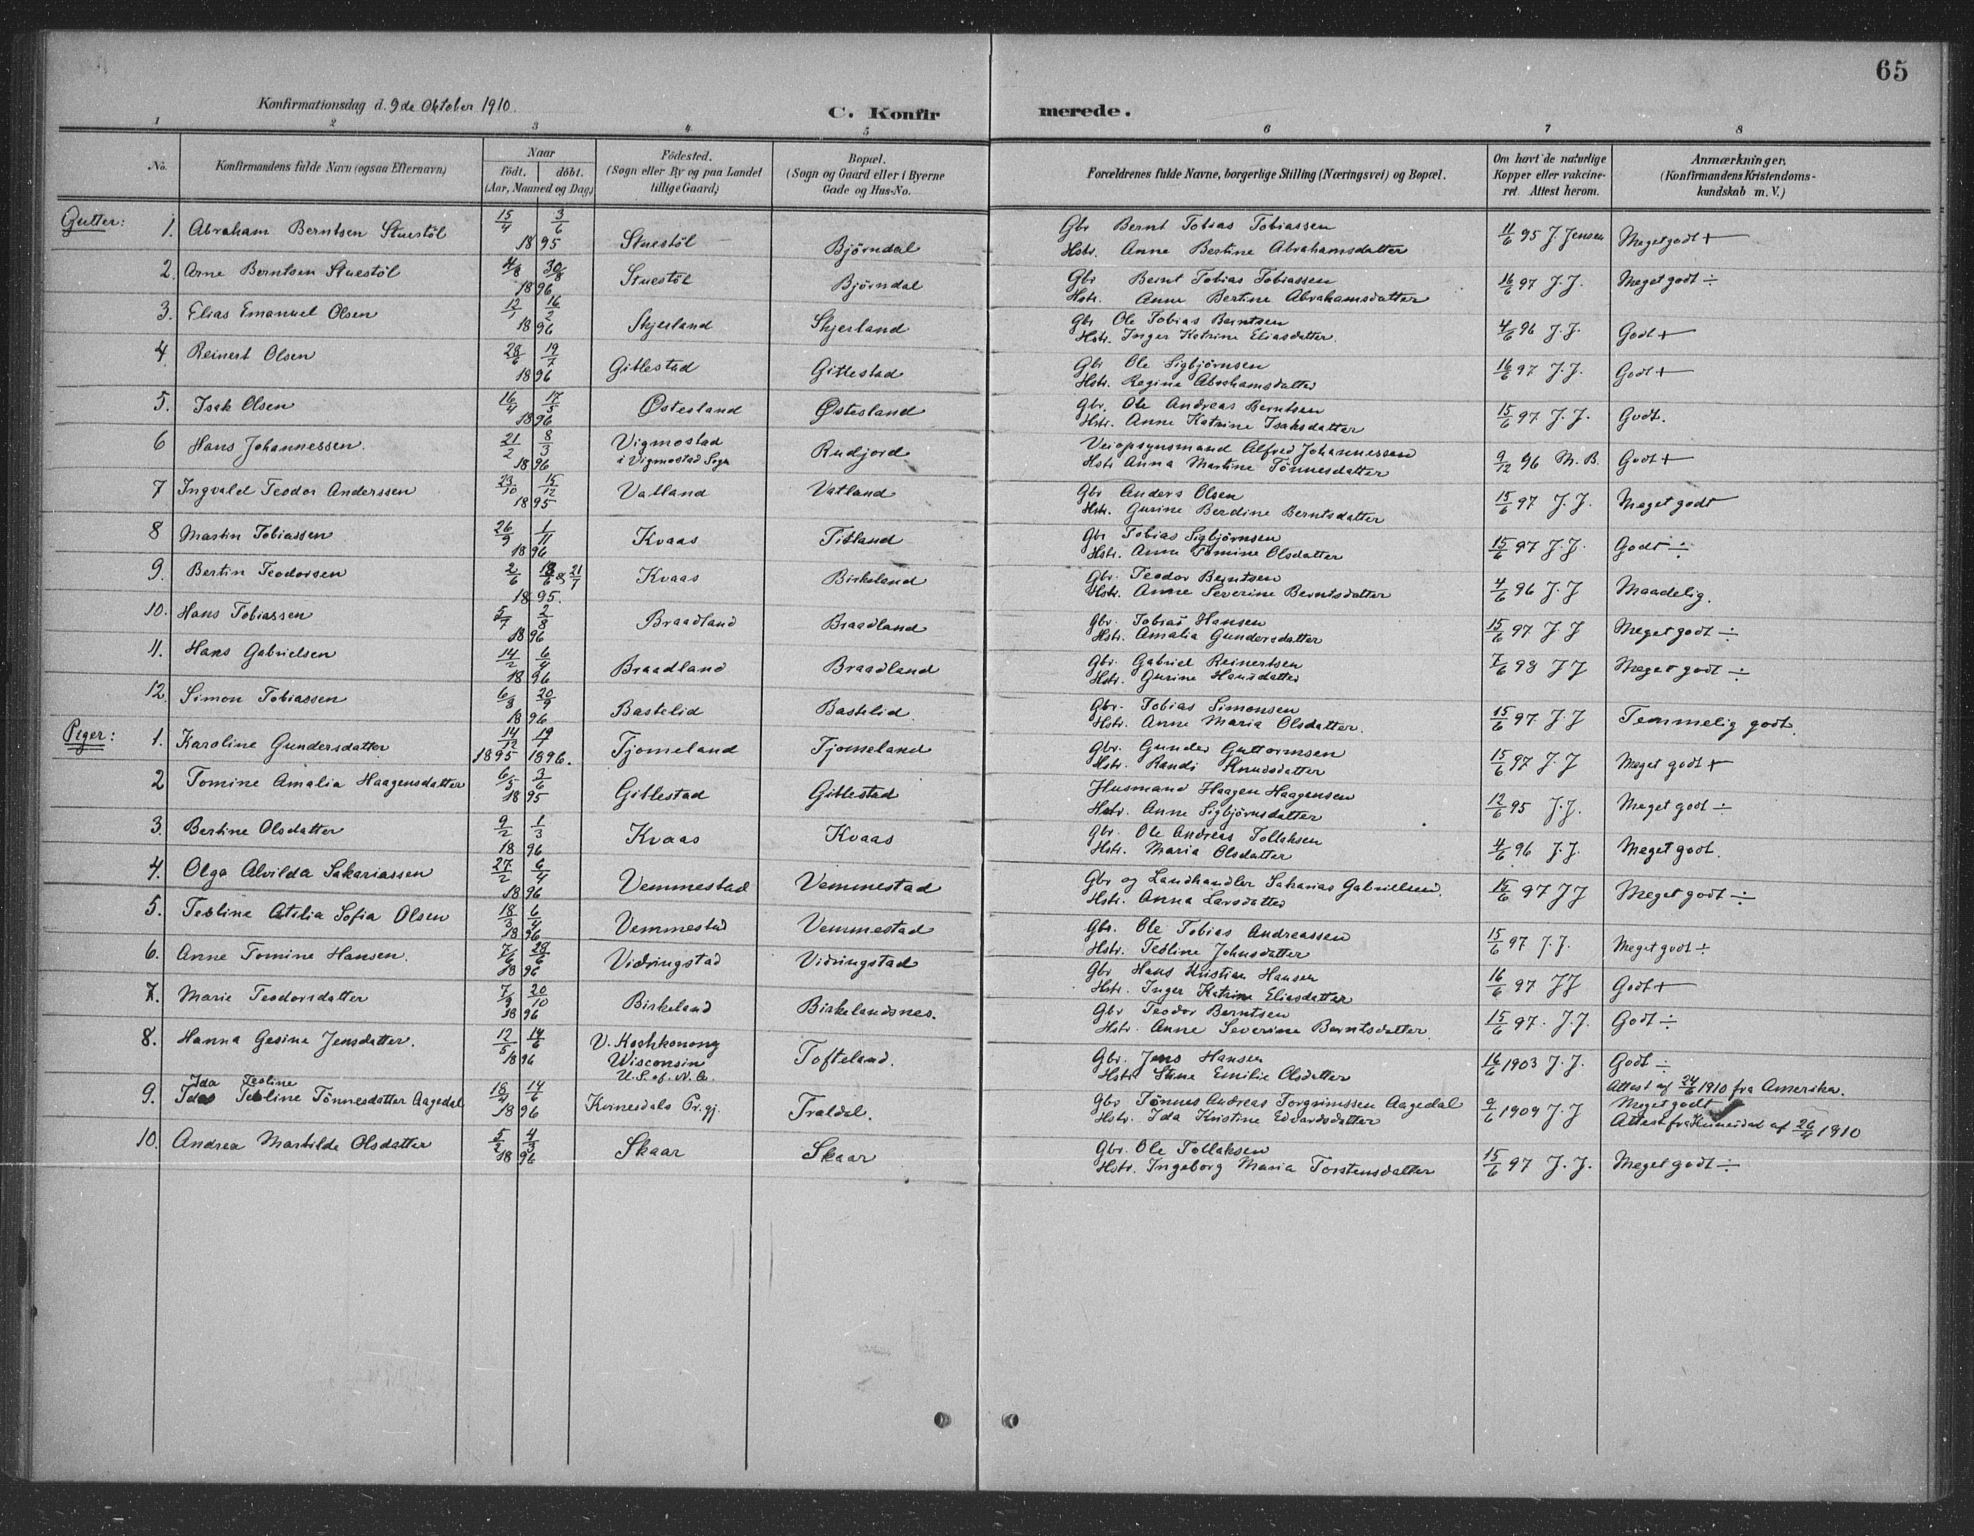 65
Konfirmationsdag d. 9de Oktober 1910.
C. Konfirmerede.
1 2 3 4 5 6 7 8
No. | Konfirmandens fulde Navn (ogsaa Efternavn) | Naar født. døbt. (Aar, Maaned og Dag) | Fødested. (Sogn eller By og paa Landet tillige Gaard) | Bopæl. (Sogn og Gaard eller i Byerne Gade og Hus-No. | Forældrenes fulde Navne, borgerlige Stilling (Næringsvei) og Bopæl. | Om havt de naturlige Kopper eller vakcineret. Attest herom. | Anmærkninger. (Konfirmandens Kristendomskundskab m. V.)
Gutter:
1. Abraham Berntsen Stuestøl | 15/4 3/6 1895 | Stuestøl | Bjørndal | Gbr Bernt Tobias Tobiassen
Hstr. Anne Bertine Abrahamsdatter | 11/6 95 J. Jensen | Meget godt +
2. Arne Berntsen Stuestøl | 4/8 30/8 1896 | Stuestøl | Bjørndal | Gbr Bernt Tobias Tobiassen
Hstr. Anne Bertine Abrahamsdatter | 16/6 97 J. J. | Meget godt ÷
3. Elias Emanuel Olsen | 12/1 16/2 1896 | Skjesland | Skjesland | Gbr Ole Tobias Berntsen
Hstr. Inger Katrine Eliasdatter. | 4/6 96 J. J. | Godt +
4 Reinert Olsen | 28/6 19/7 1896 | Gitlestad | Gitlestad | Gbr Ole Sigbjørnsen
Hstr. Regine Abrahamsdatter | 16/6 97 J. J. | Godt +
5. Isak Olsen | 16/4 17/5 1896 | Østesland | Østesland | Gbr. Ole Andreas Berntsen
Hstr. Anne Katrine Isaksdatter | 15/6 97 J. J. | Godt.
6 Hans Johannessen. | 21/2 8/3 1896 | Vigmostad i Vigmostad Sogn | Rudjord | Veiopsynsmand Alfred Johannessen
Hstr Anna Martine Tønnesdatter | 9/12 96 M. B. | Godt +
7 Ingvald Teodor Anderssen | 23/10 15/12 1895 | Vatland | Vatland | Gbr Anders Olsen
Hstr. Gurine Berdine Berntsdatter | 15/6 97 J. J. | Meget godt
8 Martin Tobiassen | 26/9 1/11 1896 | Kvaas | Titland | Gbr Tobias Sigbjørnsen
Hstr. Anne Tomine Olsdatter | 15/6 97 J. J. | Godt ÷
9. Bertin Teodorsen | 2/6 & 21/7 1895. | Kvaas | Birkeland | Gbr. Teodor Berntsen
Hstr. Anne Severine Berntsdatter | 4/6 96 J. J | Maadelig.
10. Hans Tobiassen | 5/7 2/8 1896 | Braadland | Braadland | Gbr. Tobias Hansen
Hstr. Amalia Gundersdatter | 15/6 97 J J | Meget godt ÷
11. Hans Gabrielsen | 14/2 6/4 1896 | Braadland | Braadland | Gbr. Gabriel Reinertsen
Hstr. Gurine Hansdatter | 7/6 98 J J | Meget godt ÷
12. Simon Tobiassen | 6/8 20/9 1896 | Bastelid | Bastelid. | Gbr. Tobias Simonsen
Hstr. Anne Maria Olsdatter. | 15/6 97 J J | Temmelig godt.
Piger:
1. Karoline Gundersdatter | 14/12 1895 19/1 1896. | Tjomeland | Tjomeland | Gbr. Gunder Guttormsen
Hstr. Randi Knudsdatter | 15/6 97 J. J | Meget godt +
2 Tomine Amalia Haagensdatter | 6/5 3/6 1895 | Gitlestad | Gitlestad | Husmand Haagen Haagensen
Hstr. Anne Sigbjørnsdatter | 12/6 95 J. J. | Meget godt ÷
3. Bertine Olsdatter | 9/2 1/3 1896 | Kvaas | Kvaas | Gbr. Ole Andreas Tollaksen
Hstr. Maria Olsdatter | 4/6 96 J. J. | Meget godt.
4. Olga Alvilda Sakariassen | 27/2 6/4 1896 | Vemmestad | Vemmestad | Gbr og Landhandler Sakarias Gabrielsen.
Hstr. Anna Larsdatter | 15/6 97 J J | Meget godt ÷
5. Tesline Atilia Sofia Olsen | 18/3 6/4 1896 | Vemmestad | Vemmestad | Gbr. Ole Tobias Andreassen
Hstr. Tesline Johnsdatter | 15/6 97 J. J. | Meget godt ÷
6. Anne Tomine Hansen. | 7/6 28/6 1896 | Vidringstad | Vidringstad | Gbr Hans Kristian Hansen
Hstr. Inger Katrine Eliasdatter | 16/6 97 J J | Godt +
7. Marie Teodorsdatter | 7/9 20/10 1896 | Birkeland | Birkelandsnes. | Gbr Teodor Berntsen
Hstr. Anne Severine Berntsdatter | 15/6 97. J. J. | Godt ÷
8. Hanna Gesine Jensdatter. | 12/5 14/6 1896 | V. Koshkonong Wisconsin U. S. of. N. A. | Tofteland. | Gbr. Jens Hansen
Hstr Stine Emilie Olsdatter | 16/6 1903 J. J. | Godt ÷
Attest af 24/6 1910 fra Amerika.
Ida Tesline
9. Tesline Tønnesdatter Aagedal | 18/4 14/6 1896 | Kvinesdals Pr.gj. | Traldal. | Gbr Tønnes Andreas Torgrimssen Aagedal
Hstr. Ida Kristine Edvardsdatter | 9/6 1909 J. J | Meget godt
Attest fra Kvinesdal af 26/9 1910
10. Andrea Martilde Olsdatter | 5/2 4/3 1896 | Skaar | Skaar | Gbr. Ole Tollaksen
Hstr. Ingeborg Maria Torstensdatter | 15/6 97 J. J. | Meget godt ÷